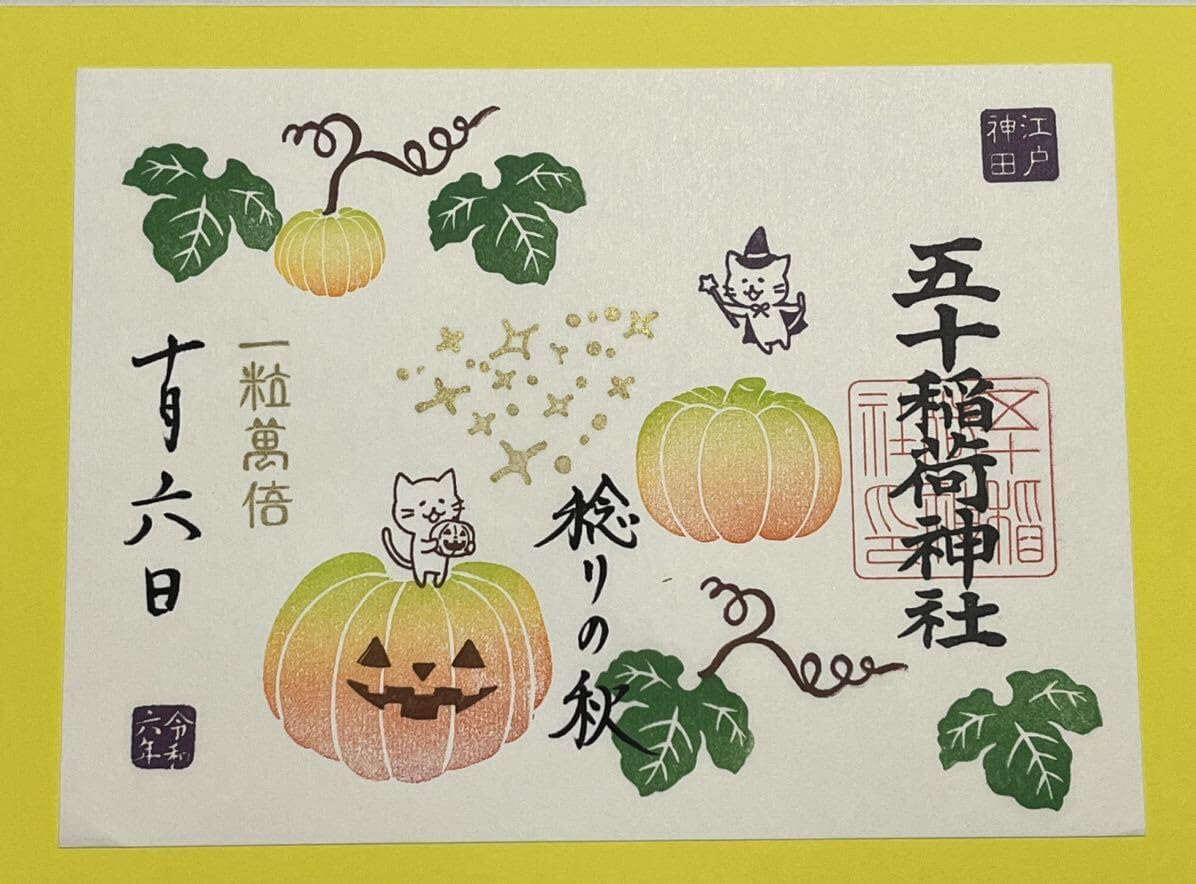 江戸
神田
五十稲荷神社
五十稲
社之印
稔りの秋
一粒萬倍
十月六日
令和
六年